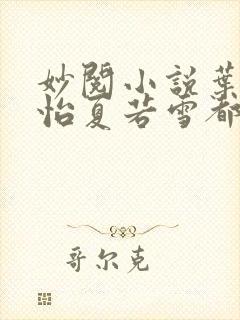 妙阅小説葉
怡夏若雪都
哥尔克